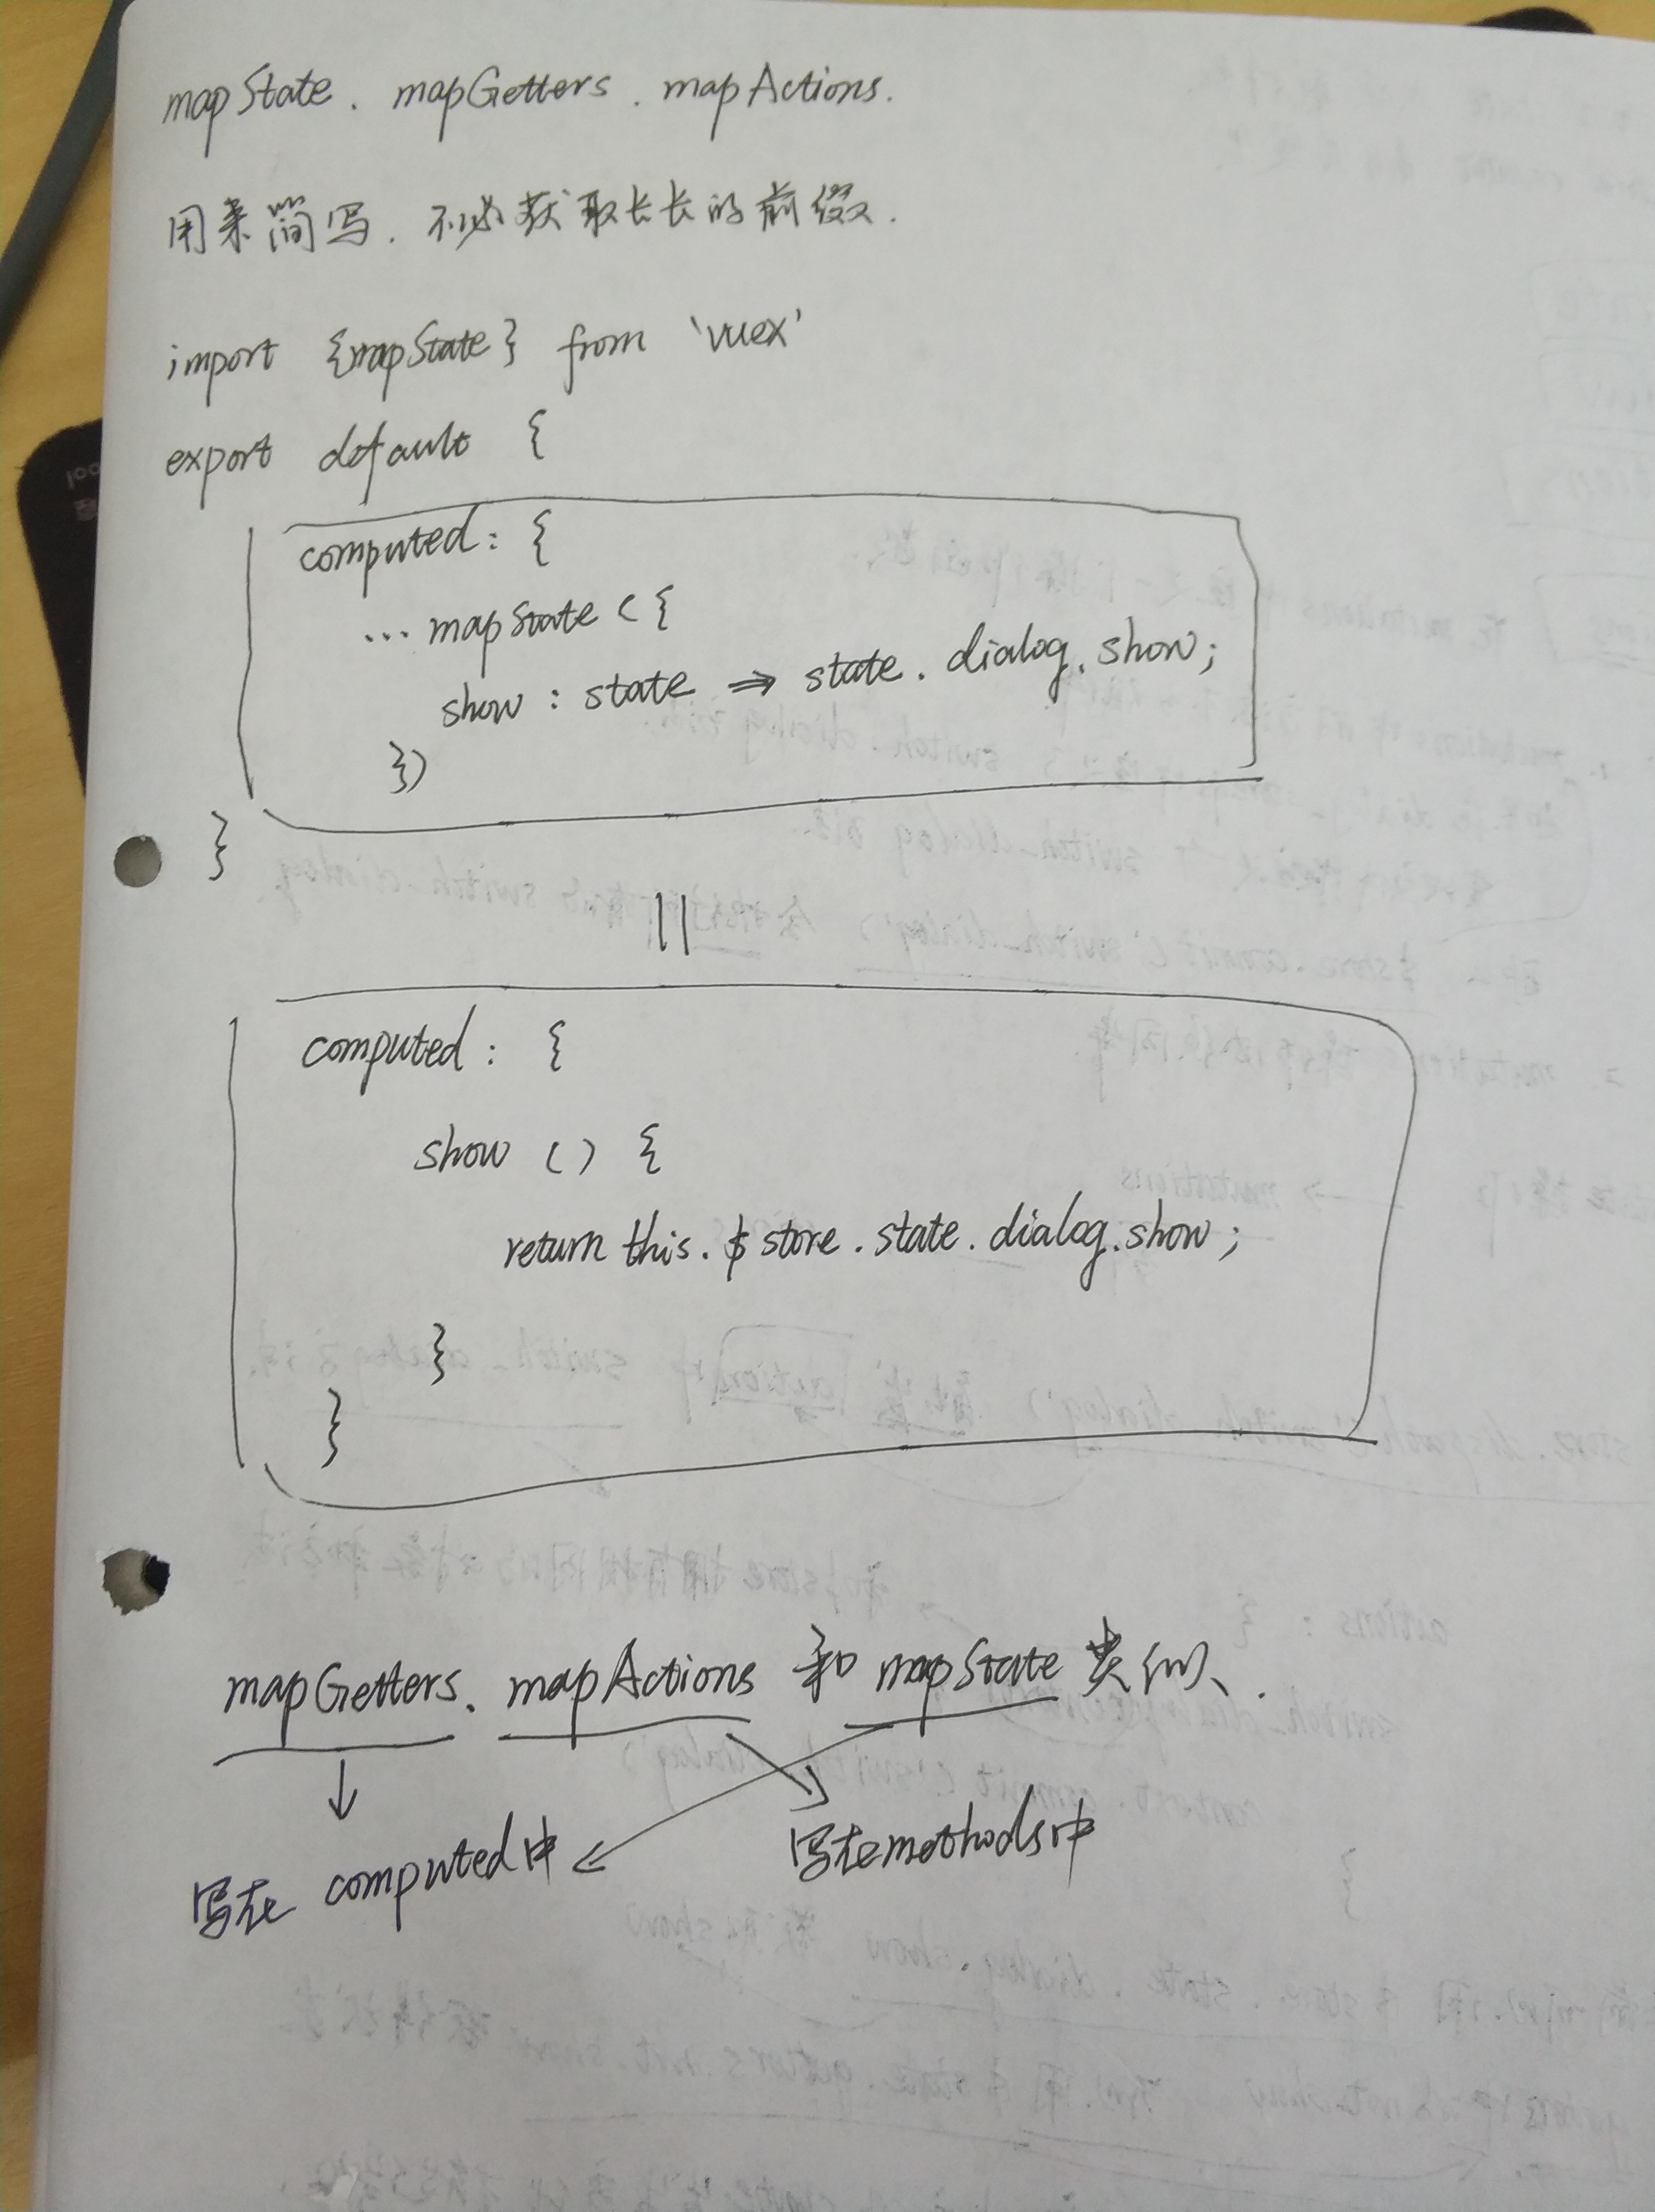 mapState. mapGetters. mapActions.
用来简写. 不必获取长长的前缀.
import {mapState} from 'vuex'
export default {
computed: {
... mapState ({
show : state => state. dialog. show;
})
}
||
computed : {
show () {
return this. $ store. state. dialog. show;
}
}
mapGetters. mapActions 和 mapState 类似.
写在 computed中
写在methods中